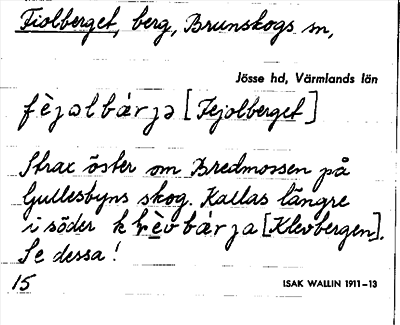 Fiolberget, berg, Brunskogs sn,
Jösse hd, Värmlands län
fèjəlbárjə [Fejolberget]
Strax öster om Bredmossen på
Gullesbyns skog. Kallas längre
i söder klèvbárja [Klevbergen].
Se dessa!
15
ISAK WALLIN 1911–13